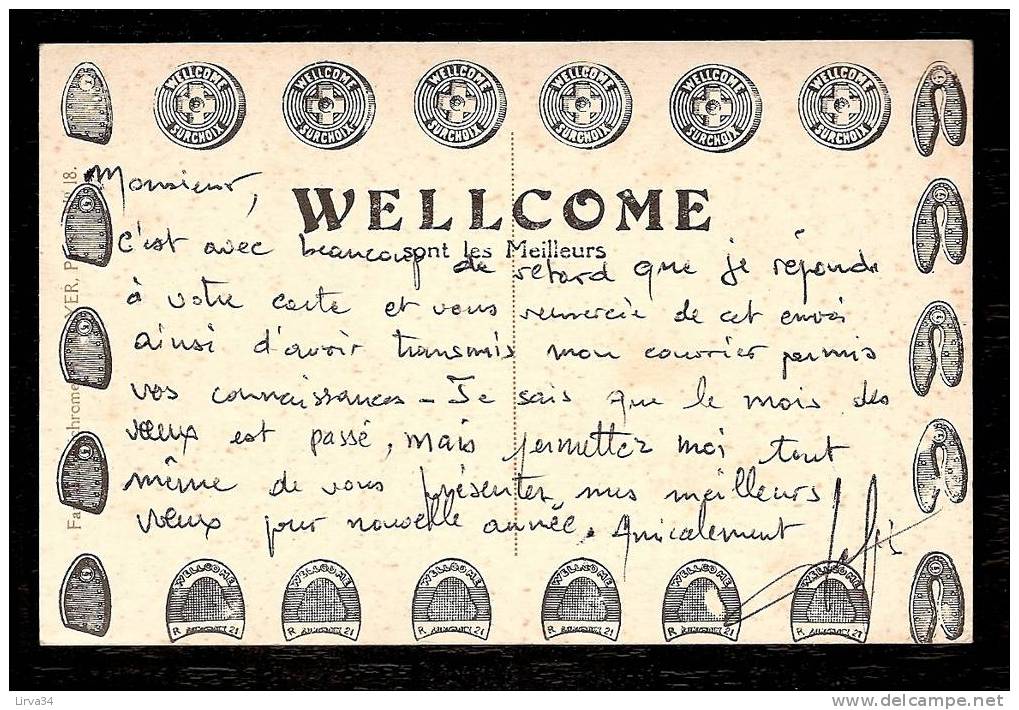 WELLCOME SURCHOIX WELLCOME SURCHOIX WELLCOME SURCHOIX WELLCOME SURCHOIX WELLCOME SURCHOIX WELLCOME SURCHOIX
Monsieur,
WELLCOME
sont les Meilleurs
c'est avec beaucoup de retard que je réponds
à votre carte et vous remercie de cet envoi
ainsi d'avoir transmis mon courrier parmis
vos connaissances - Je sais que le mois des
vœux est passé, mais permettez moi tout
même de vous présenter mes meilleurs
vœux pour nouvelle année. Amicalement
WELLCOME WELLCOME WELLCOME WELLCOME WELLCOME WELLCOME
18.
Lirva34
delcampe.net